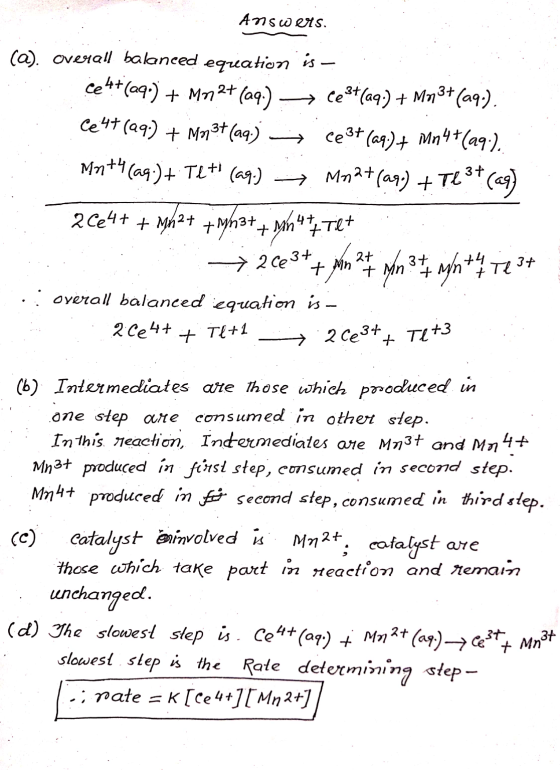 Answers.
(a). overall balanced equation is –
Ce4+(aq.) + Mn2+(aq.) ⟶ Ce3+(aq.) + Mn3+(aq.).
Ce4+(aq.) + Mn3+(aq.) ⟶ Ce3+(aq.) + Mn4+(aq.).
Mn+4(aq.) + Tl+1(aq.) ⟶ Mn2+(aq.) + Tl3+(aq)
2Ce4+ + Mn2+ + Mn3+ + Mn4+ + Tl+
⟶ 2Ce3+ + Mn2+ + Mn3+ + Mn+4 + Tl3+
∴ overall balanced equation is –
2Ce4+ + Tl+1 ⟶ 2Ce3+ + Tl+3
(b) Intermediates are those which produced in
one step are consumed in other step.
In this reaction, Intermediates are Mn3+ and Mn4+
Mn3+ produced in first step, consumed in second step.
Mn4+ produced in second step, consumed in third step.
(c) catalyst involved is Mn2+; catalyst are
those which take part in reaction and remain
unchanged.
(d) The slowest step is. Ce4+(aq.) + Mn2+(aq.) ⟶ Ce3+ + Mn3+
slowest step is the Rate determining step –
∴ rate = K[Ce4+][Mn2+]